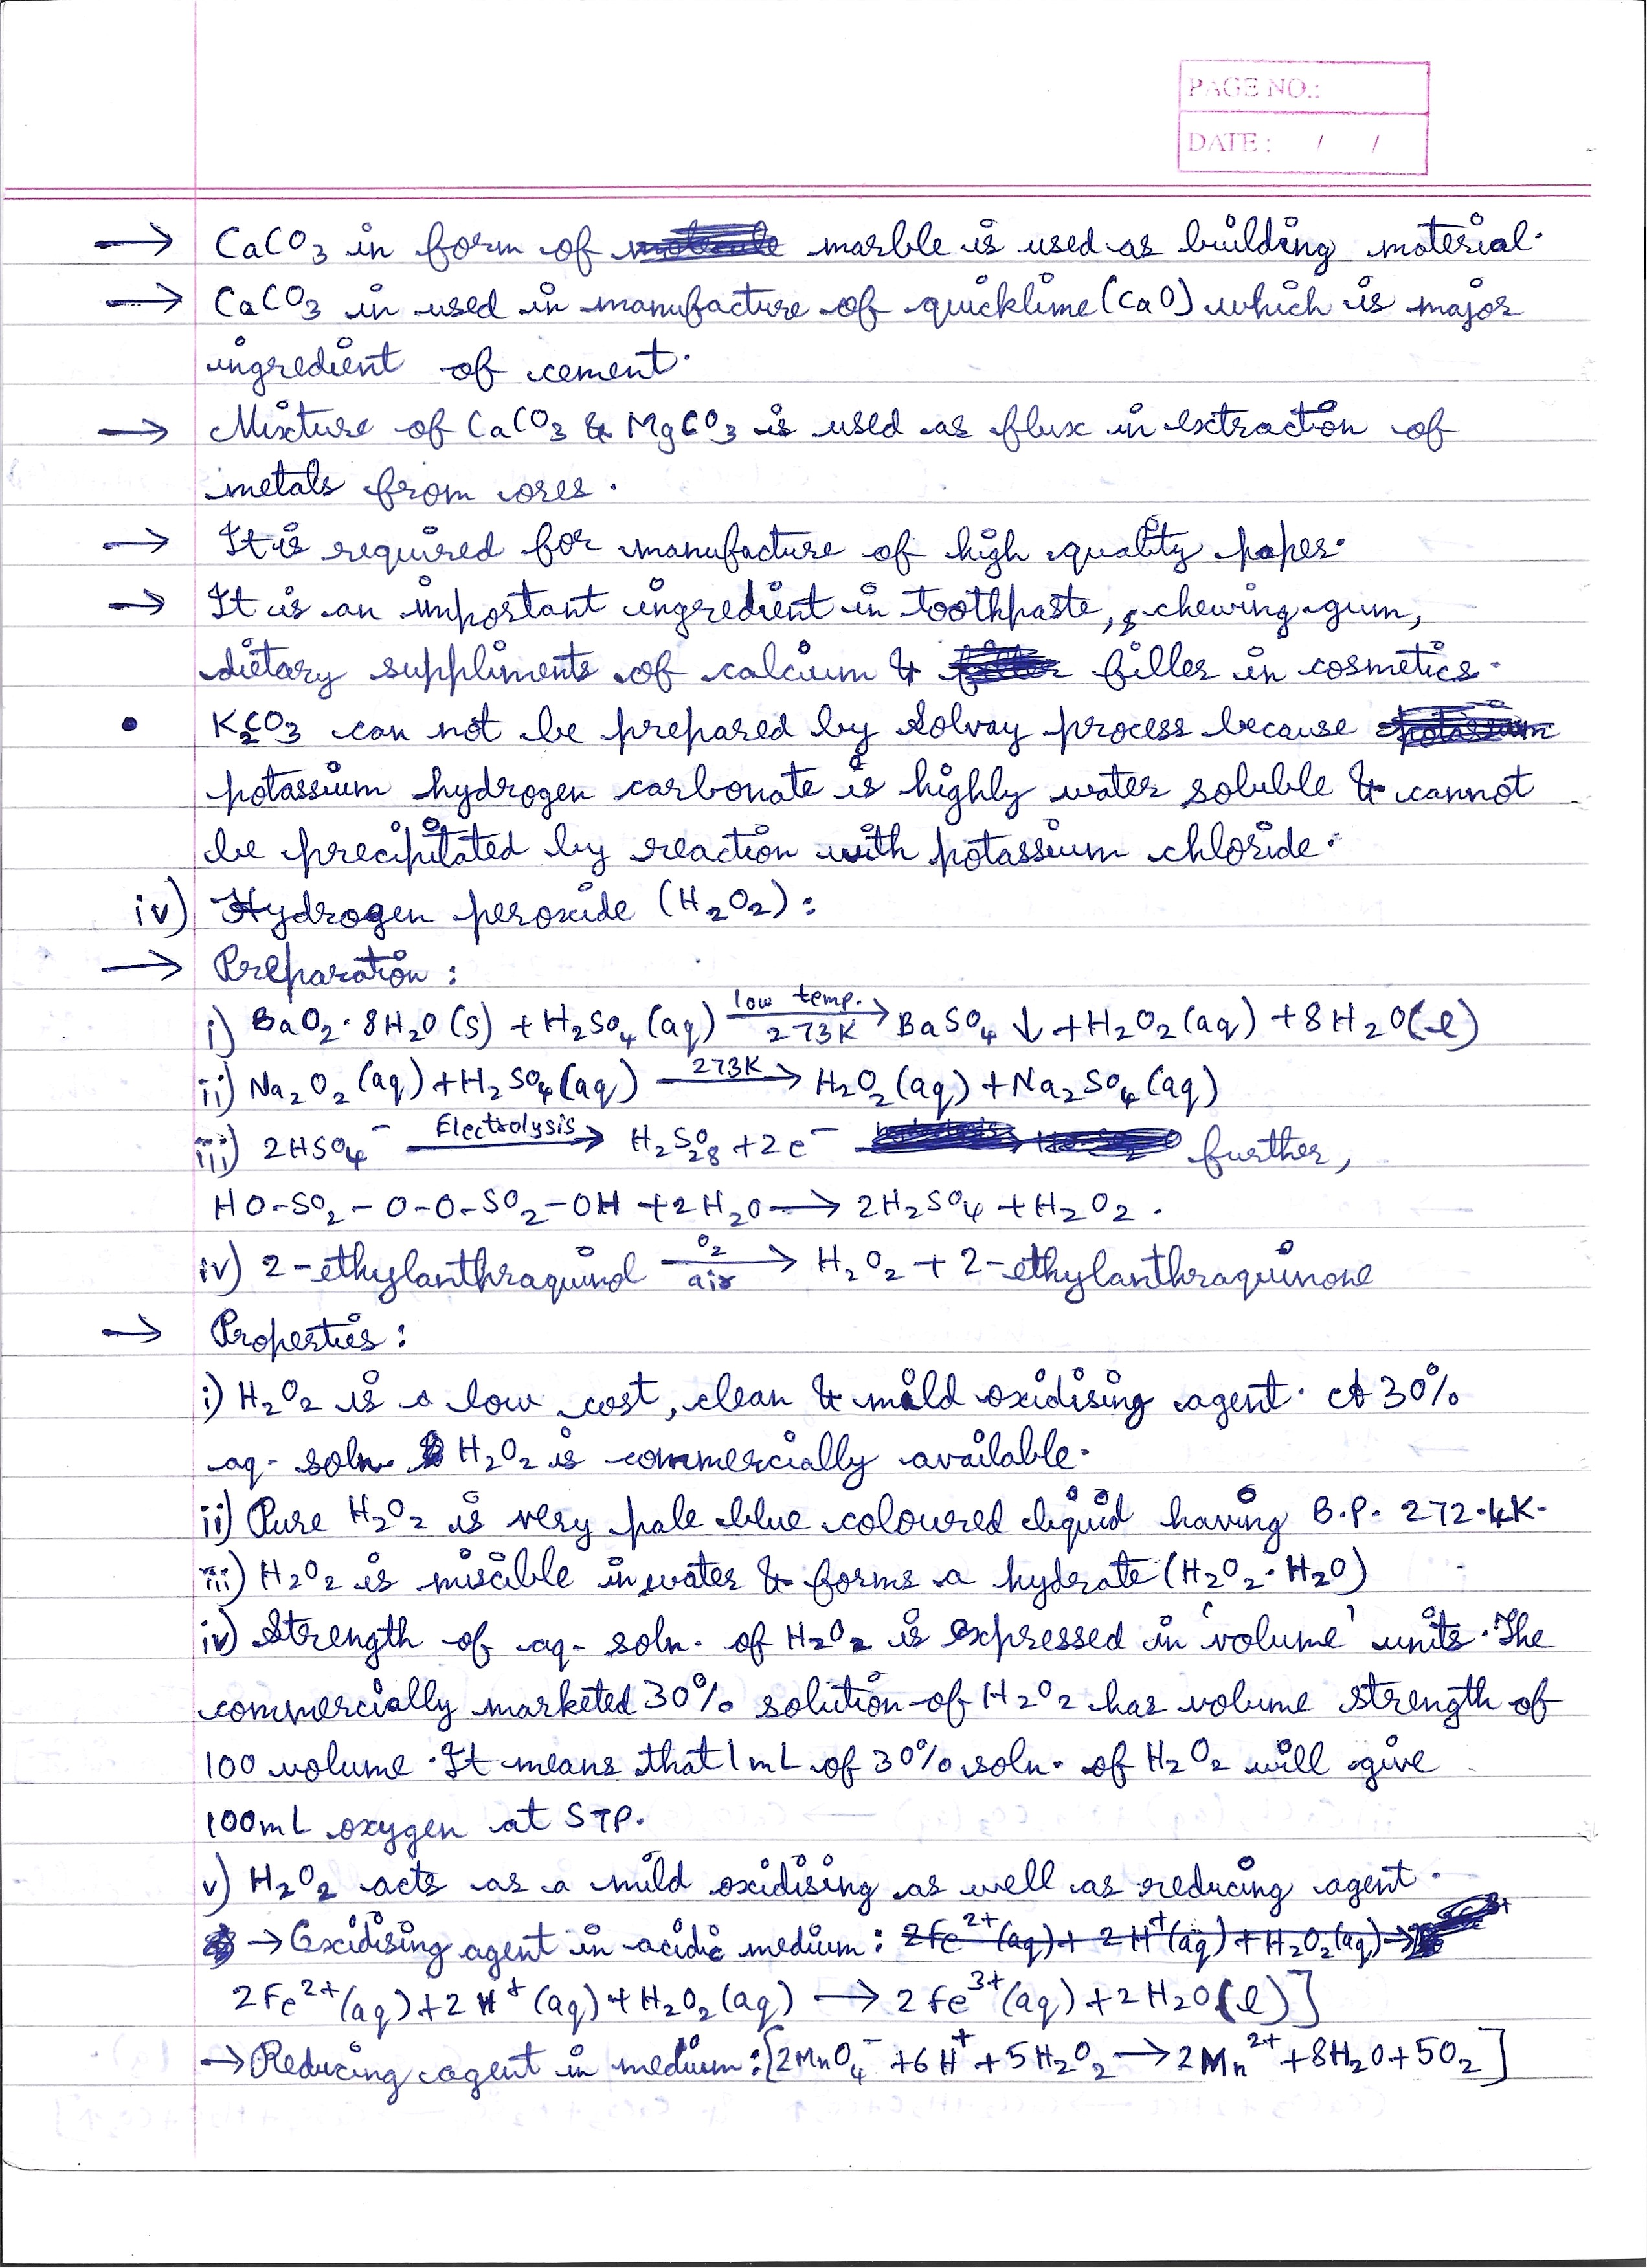 PAGE NO.:
DATE : / /
→ CaCO₃ in form of marble is used as building material.
→ CaCO₃ in used in manufacture of quicklime (CaO) which is major
ingredient of cement.
→ Mixture of CaCO₃ & MgCO₃ is used as flux in extraction of
metals from ores.
→ It is required for manufacture of high quality paper.
→ It is an important ingredient in toothpaste, chewing-gum,
dietary suppliments of calcium & filler in cosmetics.
• K₂CO₃ can not be prepared by Solvay process because
potassium hydrogen carbonate is highly water soluble & cannot
be precipitated by reaction with potassium chloride.
iv) Hydrogen peroxide (H₂O₂) :
→ Preparation :
i) BaO₂·8H₂O (s) + H₂SO₄ (aq) low temp. 273K → BaSO₄ ↓ + H₂O₂ (aq) + 8H₂O(l)
ii) Na₂O₂ (aq) + H₂SO₄ (aq) 273K → H₂O₂ (aq) + Na₂SO₄ (aq)
iii) 2HSO₄⁻ Electrolysis → H₂S₂O₈ + 2e⁻ further,
HO-SO₂-O-O-SO₂-OH + 2H₂O → 2H₂SO₄ + H₂O₂.
iv) 2-ethylanthraquinol O₂ air → H₂O₂ + 2-ethylanthraquinone
→ Properties :
i) H₂O₂ is a low cost, clean & mild oxidising agent. A 30%
aq. soln. H₂O₂ is commercially available.
ii) Pure H₂O₂ is very pale blue coloured liquid having B.P. 272.4K.
iii) H₂O₂ is miscible in water & forms a hydrate (H₂O₂·H₂O)
iv) Strength of aq. soln. of H₂O₂ is expressed in 'volume' units. The
commercially marketed 30% solution of H₂O₂ has volume strength of
100 volume. It means that 1 mL of 30% soln. of H₂O₂ will give
100mL oxygen at STP.
v) H₂O₂ acts as a mild oxidising as well as reducing agent.
→ Oxidising agent in acidic medium : 2Fe²⁺(aq) + 2H⁺(aq) + H₂O₂(aq) →
2Fe²⁺(aq) + 2H⁺(aq) + H₂O₂(aq) → 2Fe³⁺(aq) + 2H₂O(l)]
→ Reducing agent in medium : [2MnO₄⁻ + 6H⁺ + 5H₂O₂ → 2Mn²⁺ + 8H₂O + 5O₂]